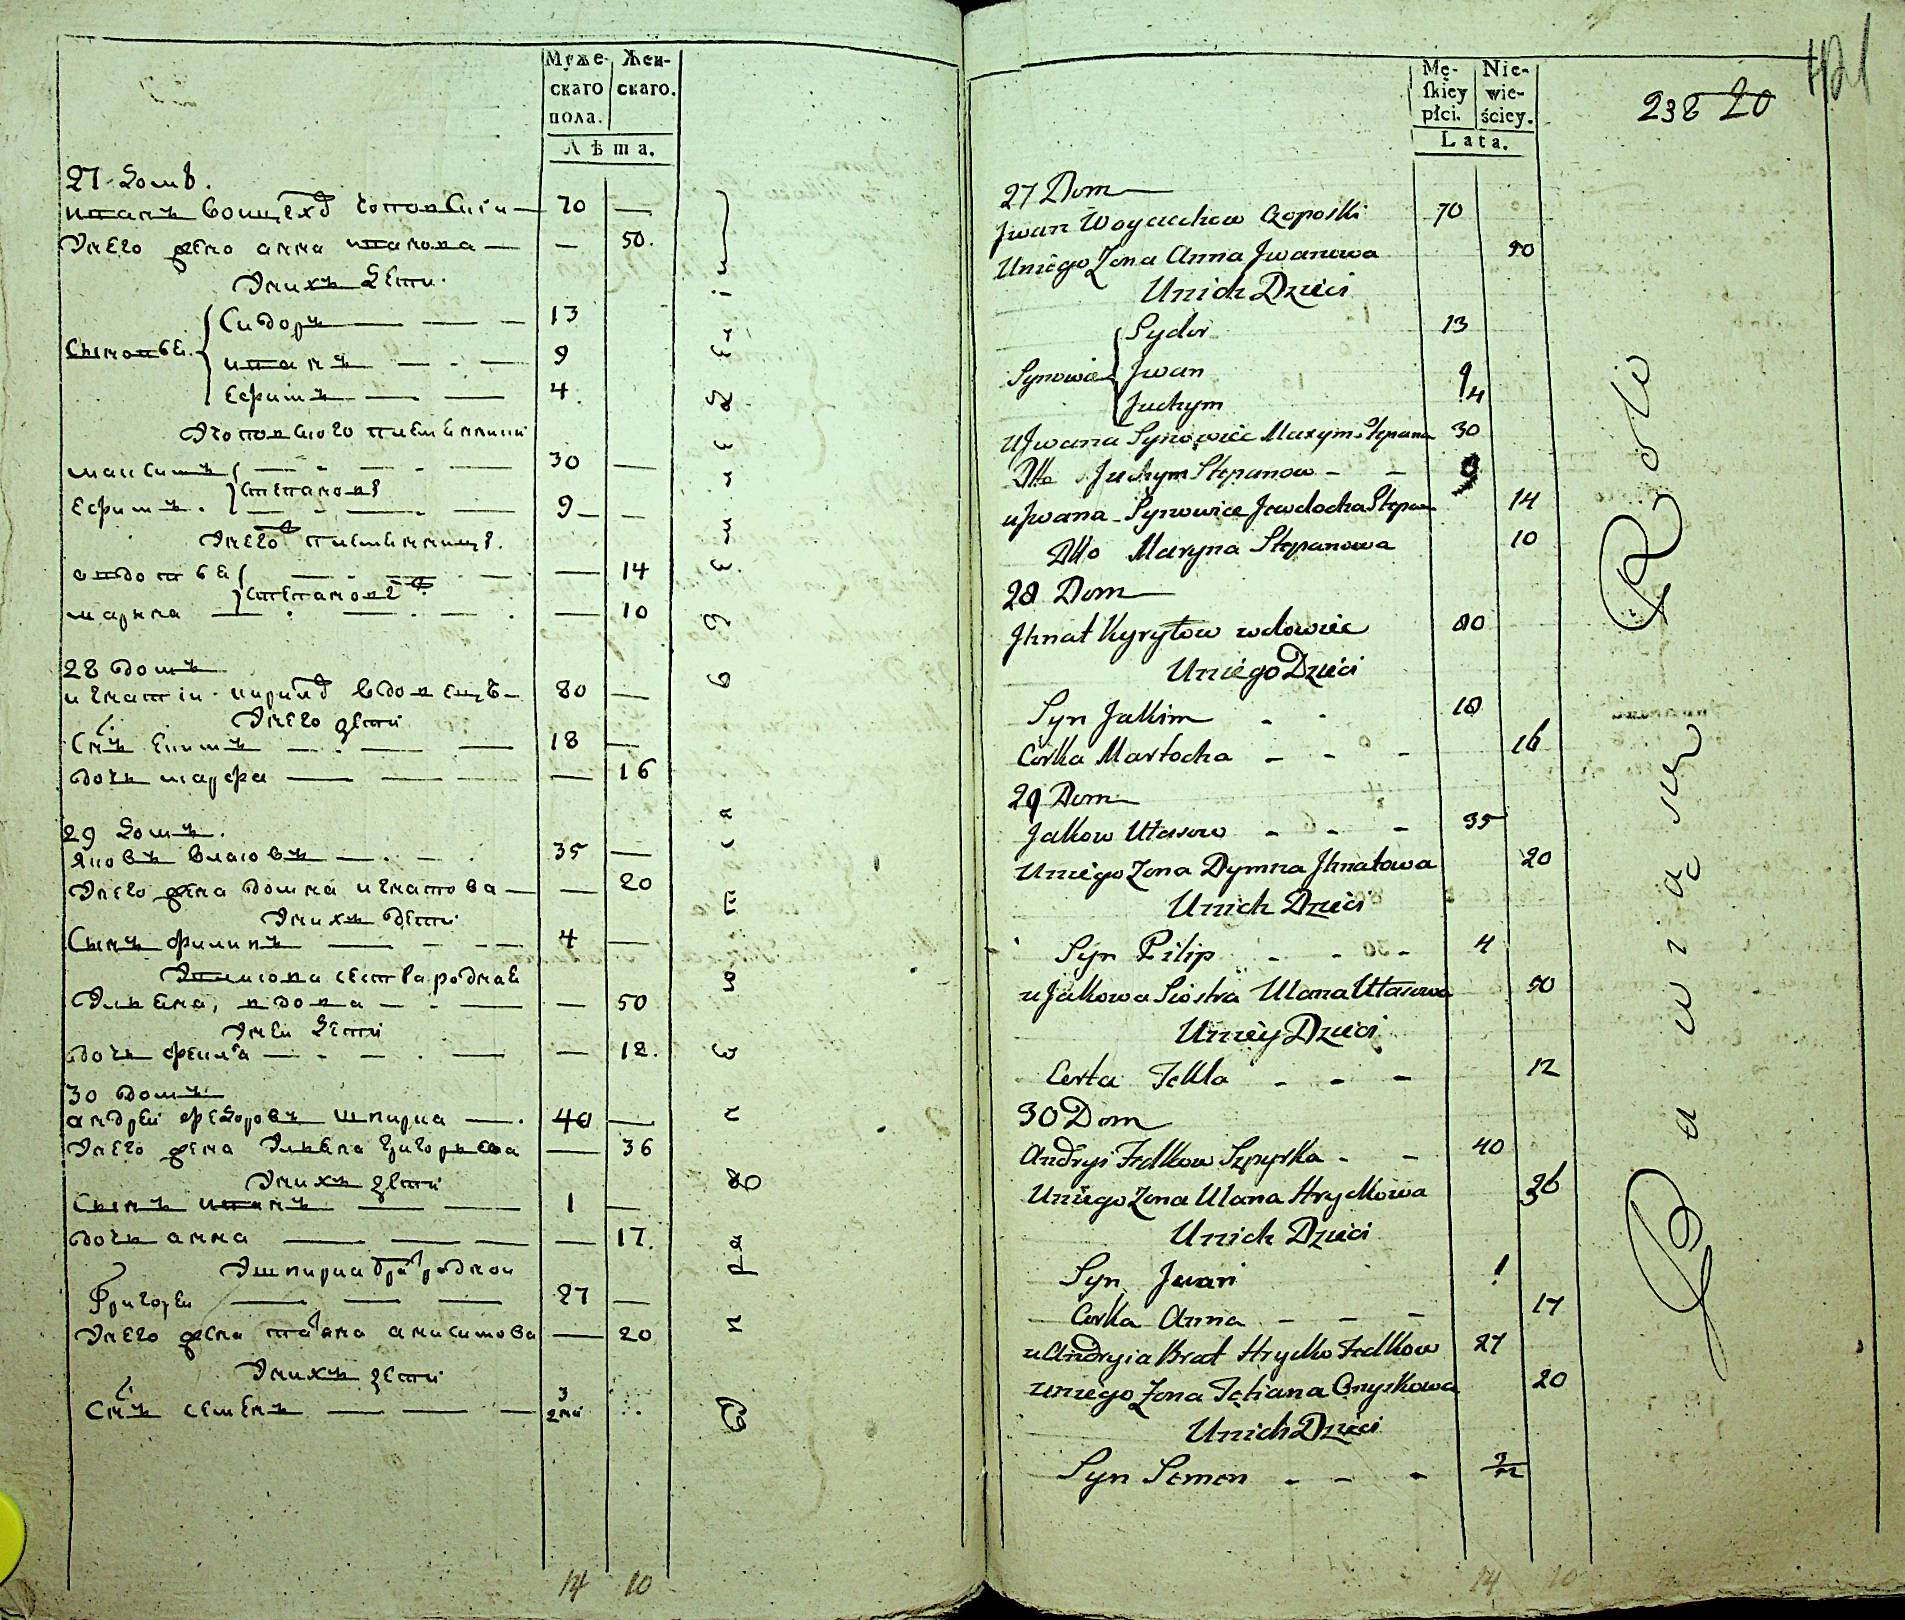 Муже-
скаго
пола.
Жен-
скаго.
Лѣта.
27 домъ.
иванъ воицехов чоповский 70 —
Унего жена анна иванова — 50.
Унихъ дети.
Сыновья
Сидоръ 13
иванъ 9
Ефимъ 4
Учоповского племянники
максимъ 30 —
степановы
Ефимъ. 9 —
Унего племянницы.
овдотья — 14
степановы
марина — 10
28 домъ
игнатіи кирилов вдовецъ 80 —
Унего дети
Снъ Екимъ 18 —
дочь марфа — 16
29 домъ.
яковъ власовъ 35 —
Унего жена домна игнатова — 20
Унихъ дети
Сынъ филипъ 4 —
Увласова сестра родная
Ульяна, вдова — 50
Уней дети
дочь фекла — 12.
30 домъ
андрей федоровъ шпирка 40 —
Унего жена Ульяна григорьева — 36
Унихъ дети
Сынъ иванъ 1 —
дочь анна — 17.
Ушпирки братъ родной
Григорей 27 —
Унего жена татьяна анисимова — 20
Унихъ дети
Снъ семенъ 3
14 10
Mę-
ſkiey
płci.
Nie-
wie-
ściey.
Lata.
238 20
421
27 Dom
Jwan Woyciechow Czoposki 70
Uniego Zona Anna Jwanowa 50
Unich Dzieci
Synowie
Sydor 13
Jwan 9
Juchym 4
uJwana Synowiec Maxym Stepana 30
Dtto Juchym Stepanow - - 9
uJwana Synowice Jewdocha Stepan 14
Dtto Maryna Stepanowa 10
28 Dom
Jhnat Kyryłow wdowiec 80
Uniego Dzieci
Syn Jakim - - 18
Corka Martocha - - - 16
29 Dom
Jakow Ułasow - - - 35
Uniego Zona Dymna Jhnatowa 20
Unich Dzieci
Syn Pilip - - - 4
uJakowa Siostra Ulana Ułasowa 50
Uniey Dzieci
Corka Tekla - - - 12
30 Dom
Andryi Fedkow Szpyrka - - 40
Uniego Zona Ulana Hryckowa 36
Unich Dzieci
Syn Jwan 1
Corka Anna - - - 17
uAndryia Brat Hrycko Fedkow 27
uniego Zona Tetiana Onyskowa 20
Unich Dzieci
Syn Semen - - - 3/12
14 10